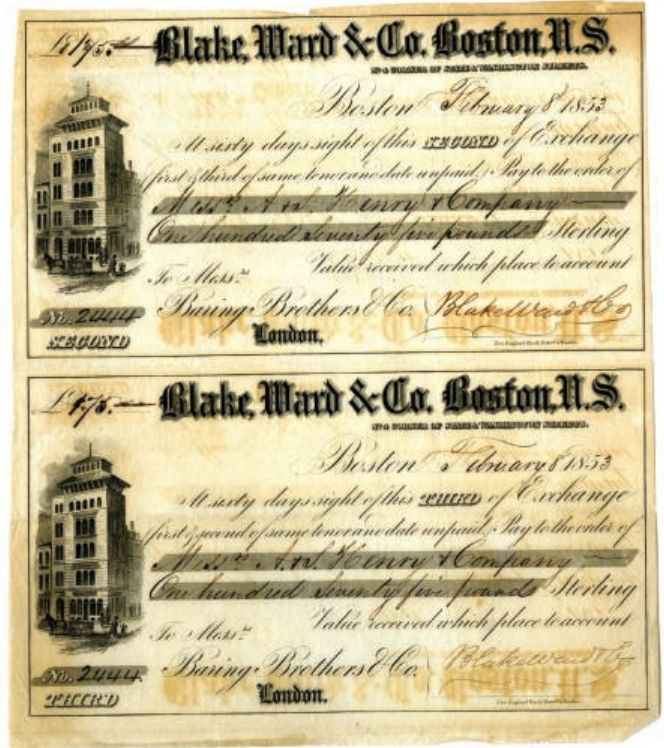 £175.
Blake, Ward & Co. Boston, U.S.
No 4 CORNER OF STATE & WASHINGTON STREETS.
Boston February 8 1853
At sixty days sight of this SECOND of Exchange
first & third of same tenor and date unpaid, Pay to the order of
Messrs A & S. Henry & Company
One hundred Seventy five pounds Sterling
Value received which place to account
To Messrs
Baring Brothers & Co. Blake Ward & Co
London.
No. 2444
SECOND
£175.
Blake, Ward & Co. Boston, U.S.
No 4 CORNER OF STATE & WASHINGTON STREETS.
Boston February 8 1853
At sixty days sight of this THIRD of Exchange
first & second of same tenor and date unpaid, Pay to the order of
Messrs A. & S. Henry & Company
One hundred Seventy five pounds Sterling
Value received which place to account
To Messrs
Baring Brothers & Co. Blake Ward & Co
London.
No. 2444
THIRD